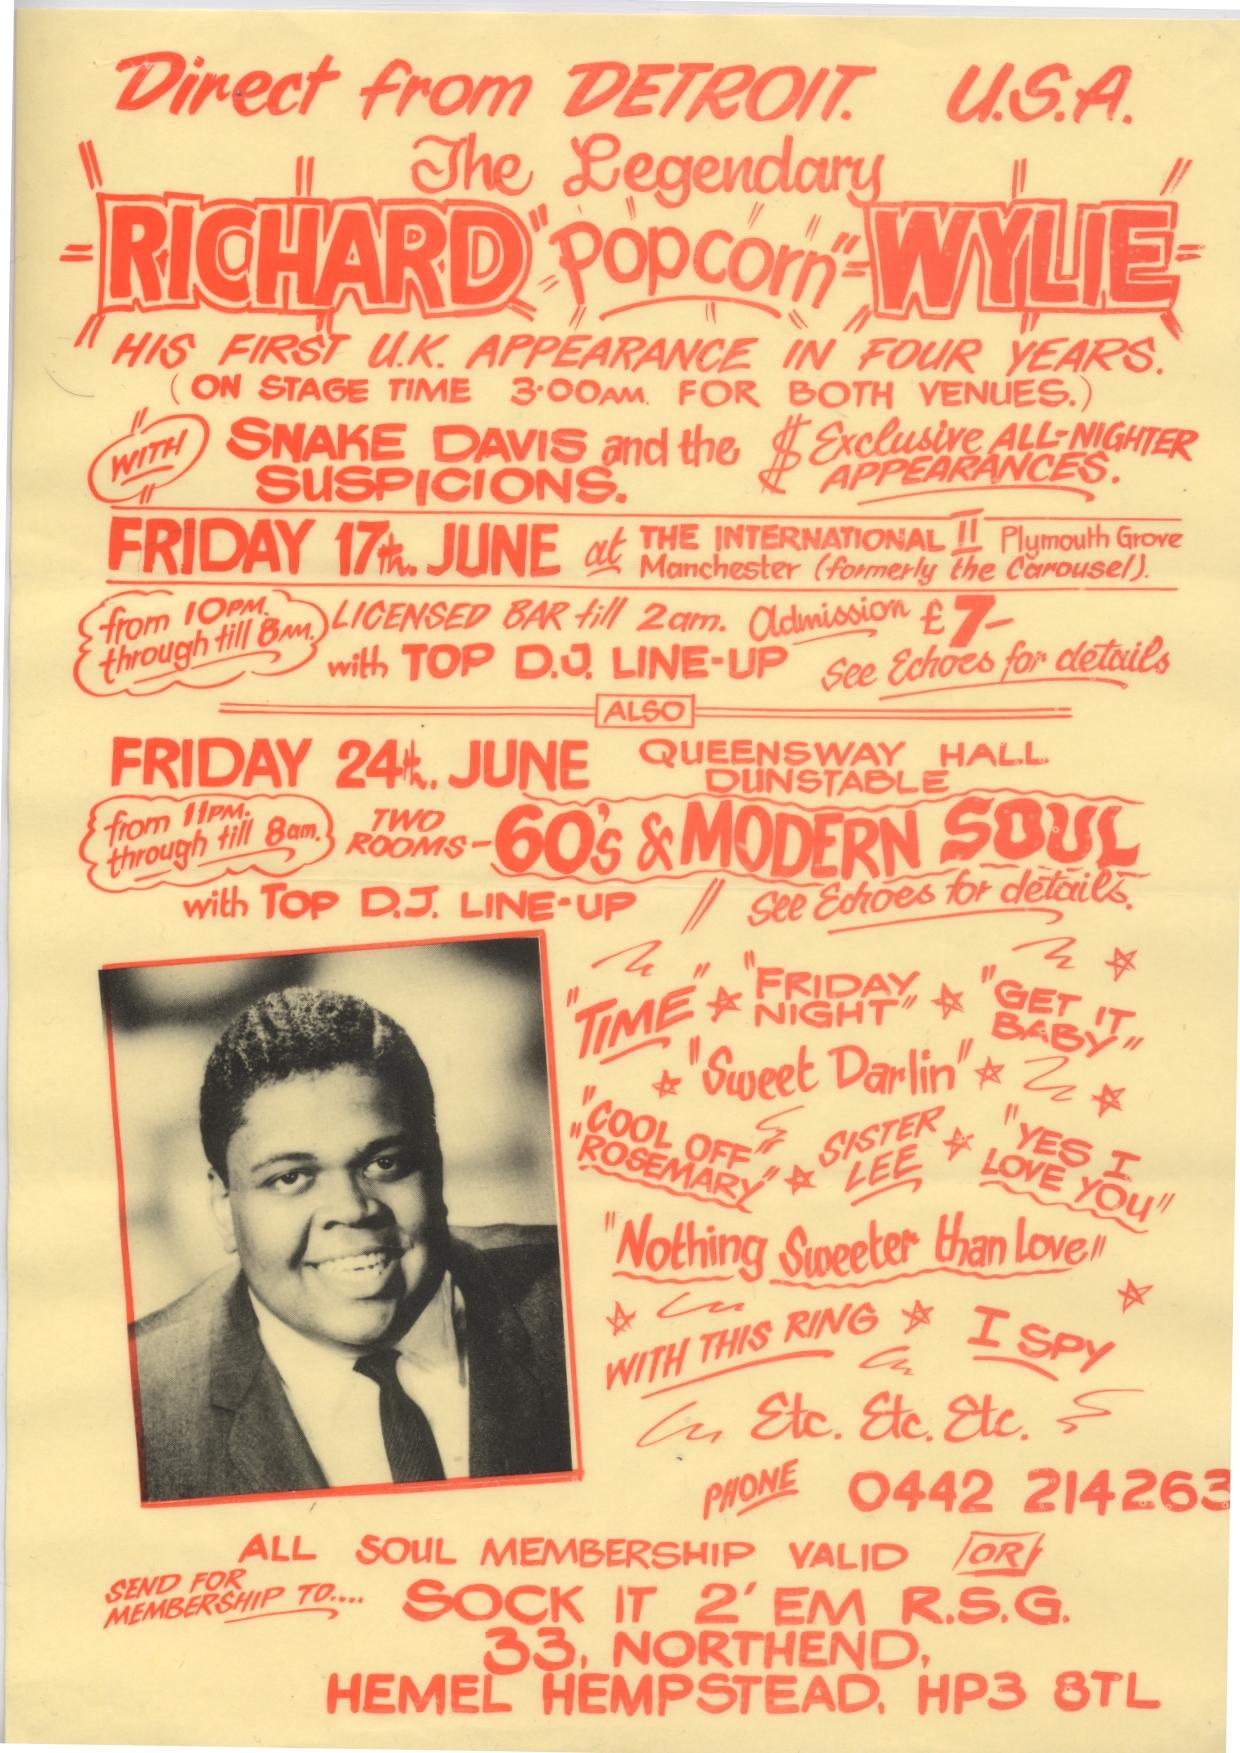 Direct from DETROIT. U.S.A.
The Legendary
RICHARD "Popcorn" WYLIE
HIS FIRST U.K. APPEARANCE IN FOUR YEARS.
(ON STAGE TIME 3·00AM. FOR BOTH VENUES.)
WITH SNAKE DAVIS and the SUSPICIONS.
$ Exclusive ALL-NIGHTER APPEARANCES.
FRIDAY 17th. JUNE at THE INTERNATIONAL II Plymouth Grove
Manchester (formerly the Carousel).
from 10PM. through till 8AM.
LICENSED BAR till 2am. Admission £7-
with TOP D.J. LINE-UP See Echoes for details
ALSO
FRIDAY 24th. JUNE QUEENSWAY HALL
DUNSTABLE
from 11PM. through till 8am.
TWO ROOMS - 60's & MODERN SOUL
with TOP D.J. LINE-UP // See Echoes for details.
"TIME" "FRIDAY NIGHT" "GET IT BABY"
"Sweet Darlin"
"COOL OFF" SISTER LEE "YES I LOVE YOU"
ROSEMARY"
"Nothing Sweeter than Love"
WITH THIS RING I SPY
Etc. Etc. Etc.
PHONE 0442 214263
ALL SOUL MEMBERSHIP VALID OR
SEND FOR MEMBERSHIP TO....
SOCK IT 2' EM R.S.G.
33, NORTHEND,
HEMEL HEMPSTEAD, HP3 8TL